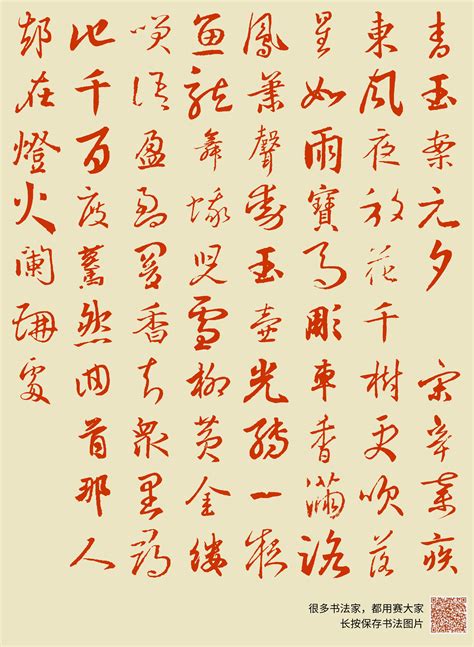 青玉案元夕 宋辛棄疾
東风夜放花千樹更吹落
星如雨寶馬彫車香滿路
鳳簫聲動玉壺光轉一夜
魚龍舞蛾兒雪柳黃金縷
笑語盈盈暗香去眾里尋
他千百度驀然回首那人
卻在燈火闌珊處
很多书法家，都用赛大家
长按保存书法图片